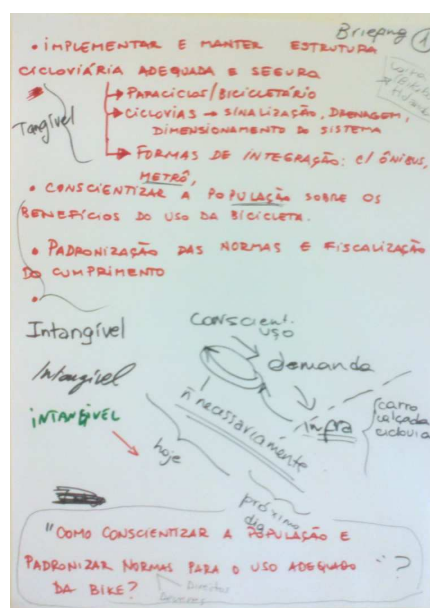 Briefing 1
• IMPLEMENTAR E MANTER ESTRUTURA
CICLOVIÁRIA ADEQUADA E SEGURA
→ PARACICLOS/BICICLETÁRIO
→ CICLOVIAS → SINALIZAÇÃO, DRENAGEM,
DIMENSIONAMENTO DO SISTEMA
Tangível
→ FORMAS DE INTEGRAÇÃO: C/ ÔNIBUS,
METRÔ,
• CONSCIENTIZAR A POPULAÇÃO SOBRE OS
BENEFÍCIOS DO USO DA BICICLETA.
• PADRONIZAÇÃO DAS NORMAS E FISCALIZAÇÃO
DO CUMPRIMENTO
•
Intangível
Intangível
INTANGÍVEL
Conscient.
uso
demanda
infra
carro
calçada
ciclovia
ñ necessariamente
hoje
próximo
dia
"COMO CONSCIENTIZAR A POPULAÇÃO E
PADRONIZAR NORMAS PARA O USO ADEQUADO
DA BIKE?" ?
Direitos
Deveres